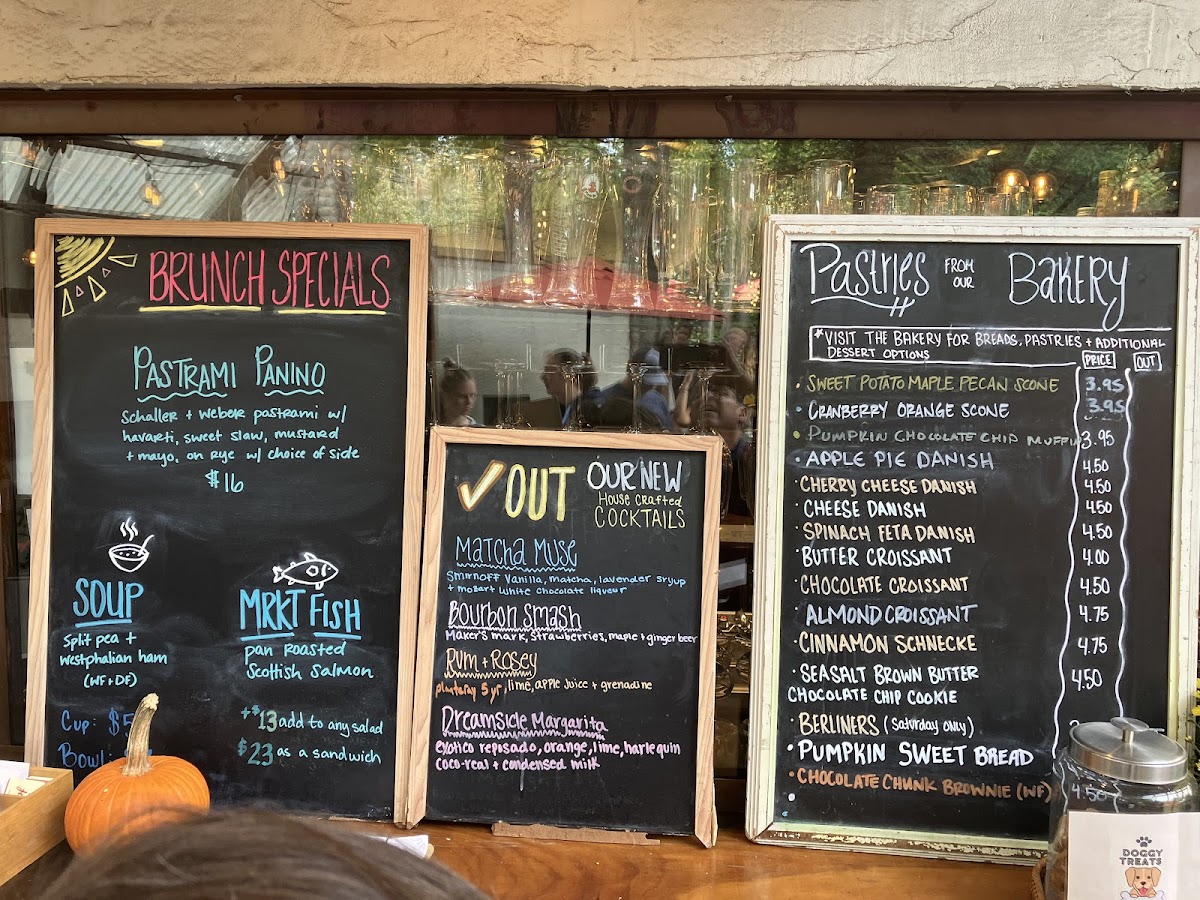 BRUNCH SPECIALS
PASTRAMI PANINO
Schaller + Weber pastrami w/
havarti, sweet slaw, mustard
+ mayo, on rye w/ choice of side
$16
SOUP
Split pea +
Westphalian ham
(WF+DF)
Cup: $5
Bowl:
MRKT FISH
pan roasted
Scottish Salmon
+$13 add to any salad
$23 as a sandwich
✓OUT OUR NEW
HOUSE CRAFTED
COCKTAILS
Matcha Muse
Smirnoff Vanilla, matcha, lavender sryup
+ mozart white chocolate liqueur
Bourbon Smash
Maker's mark, strawberries, maple + ginger beer
Rum + Rosey
plantaray 5 yr, lime, apple juice + grenadine
Dreamsicle Margarita
exotico reposado, orange, lime, harlequin
coco-real + condensed milk
Pastries FROM OUR Bakery
*VISIT THE BAKERY FOR BREADS, PASTRIES + ADDITIONAL
DESSERT OPTIONS
PRICE OUT
• SWEET POTATO MAPLE PECAN SCONE 3.95
• CRANBERRY ORANGE SCONE 3.95
• PUMPKIN CHOCOLATE CHIP MUFFIN 3.95
• APPLE PIE DANISH 4.50
• CHERRY CHEESE DANISH 4.50
• CHEESE DANISH 4.50
• SPINACH FETA DANISH 4.50
• BUTTER CROISSANT 4.00
• CHOCOLATE CROISSANT 4.50
• ALMOND CROISSANT 4.75
• CINNAMON SCHNECKE 4.75
• SEASALT BROWN BUTTER 4.50
CHOCOLATE CHIP COOKIE
• BERLINERS (Saturday only)
• PUMPKIN SWEET BREAD
• CHOCOLATE CHUNK BROWNIE (WF) 4.50
DOGGY
TREATS